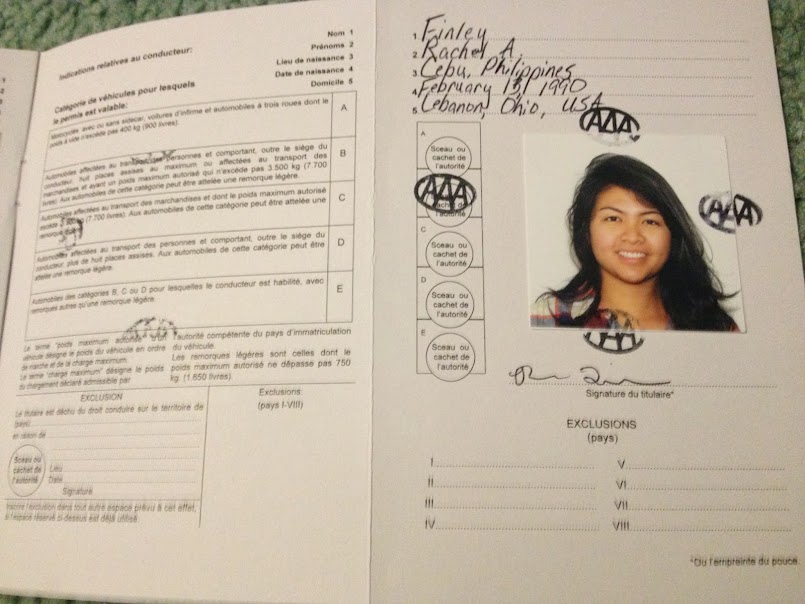 Indications relatives au conducteur:
Nom 1
Prénoms 2
Lieu de naissance 3
Date de naissance 4
Domicile 5
Catégorie de véhicules pour lesquels
le permis est valable:
Motocycles, avec ou sans sidecar, voitures d'infirme et automobiles à trois roues dont le
poids à vide n'excède pas 400 kg (900 livres).
A
Automobiles affectées au transport des personnes et comportant, outre le siège du
conducteur, huit places assises au maximum ou affectées au transport des
marchandises et ayant un poids maximum autorisé qui n'excède pas 3.500 kg (7.700
livres). Aux automobiles de cette catégorie peut être attelée une remorque légère.
B
Automobiles affectées au transport des marchandises et dont le poids maximum autorisé
excède (7.700 livres). Aux automobiles de cette catégorie peut être attelée une
remorque
C
Automobiles affectées au transport des personnes et comportant, outre le siège du
conducteur, plus de huit places assises. Aux automobiles de cette catégorie peut être
attelée une remorque légère.
D
Automobiles des catégories B, C ou D pour lesquelles le conducteur est habilité, avec
remorques autres qu'une remorque légère.
E
Le terme "poids maximum autorisé" d'un
véhicule désigne le poids du véhicule en ordre
de marche et de la charge maximum.
Le terme "charge maximum" désigne le poids
du chargement déclaré admissible par
l'autorité compétente du pays d'immatriculation
du véhicule.
Les remorques légères sont celles dont le
poids maximum autorisé ne dépasse pas 750
kg. (1.650 livres).
EXCLUSION
Le titulaire est déchu du droit conduire sur le territoire de
(pays)
en raison de
Sceau ou
cachet de
l'autorité
Lieu
Date
Signature
Inscrire l'exclusion dans tout autre espace prévu à cet effet,
si l'espace réservé ci-dessus est déjà utilisé.
Exclusions:
(pays I-VIII)
1. Finley
2. Rachel A.
3. Cebu, Philippines
4. February 13, 1990
5. Lebanon, Ohio, USA
AAA
A
Sceau ou
cachet de
l'autorité
AAA
cachet de
l'autorité
C
Sceau ou
cachet de
l'autorité
D
Sceau ou
cachet de
l'autorité
E
Sceau ou
cachet de
l'autorité
AAA
AAA
Signature du titulaire*
EXCLUSIONS
(pays)
I
II
III
IV
V
VI
VII
VIII
*Ou l'empreinte du pouce.